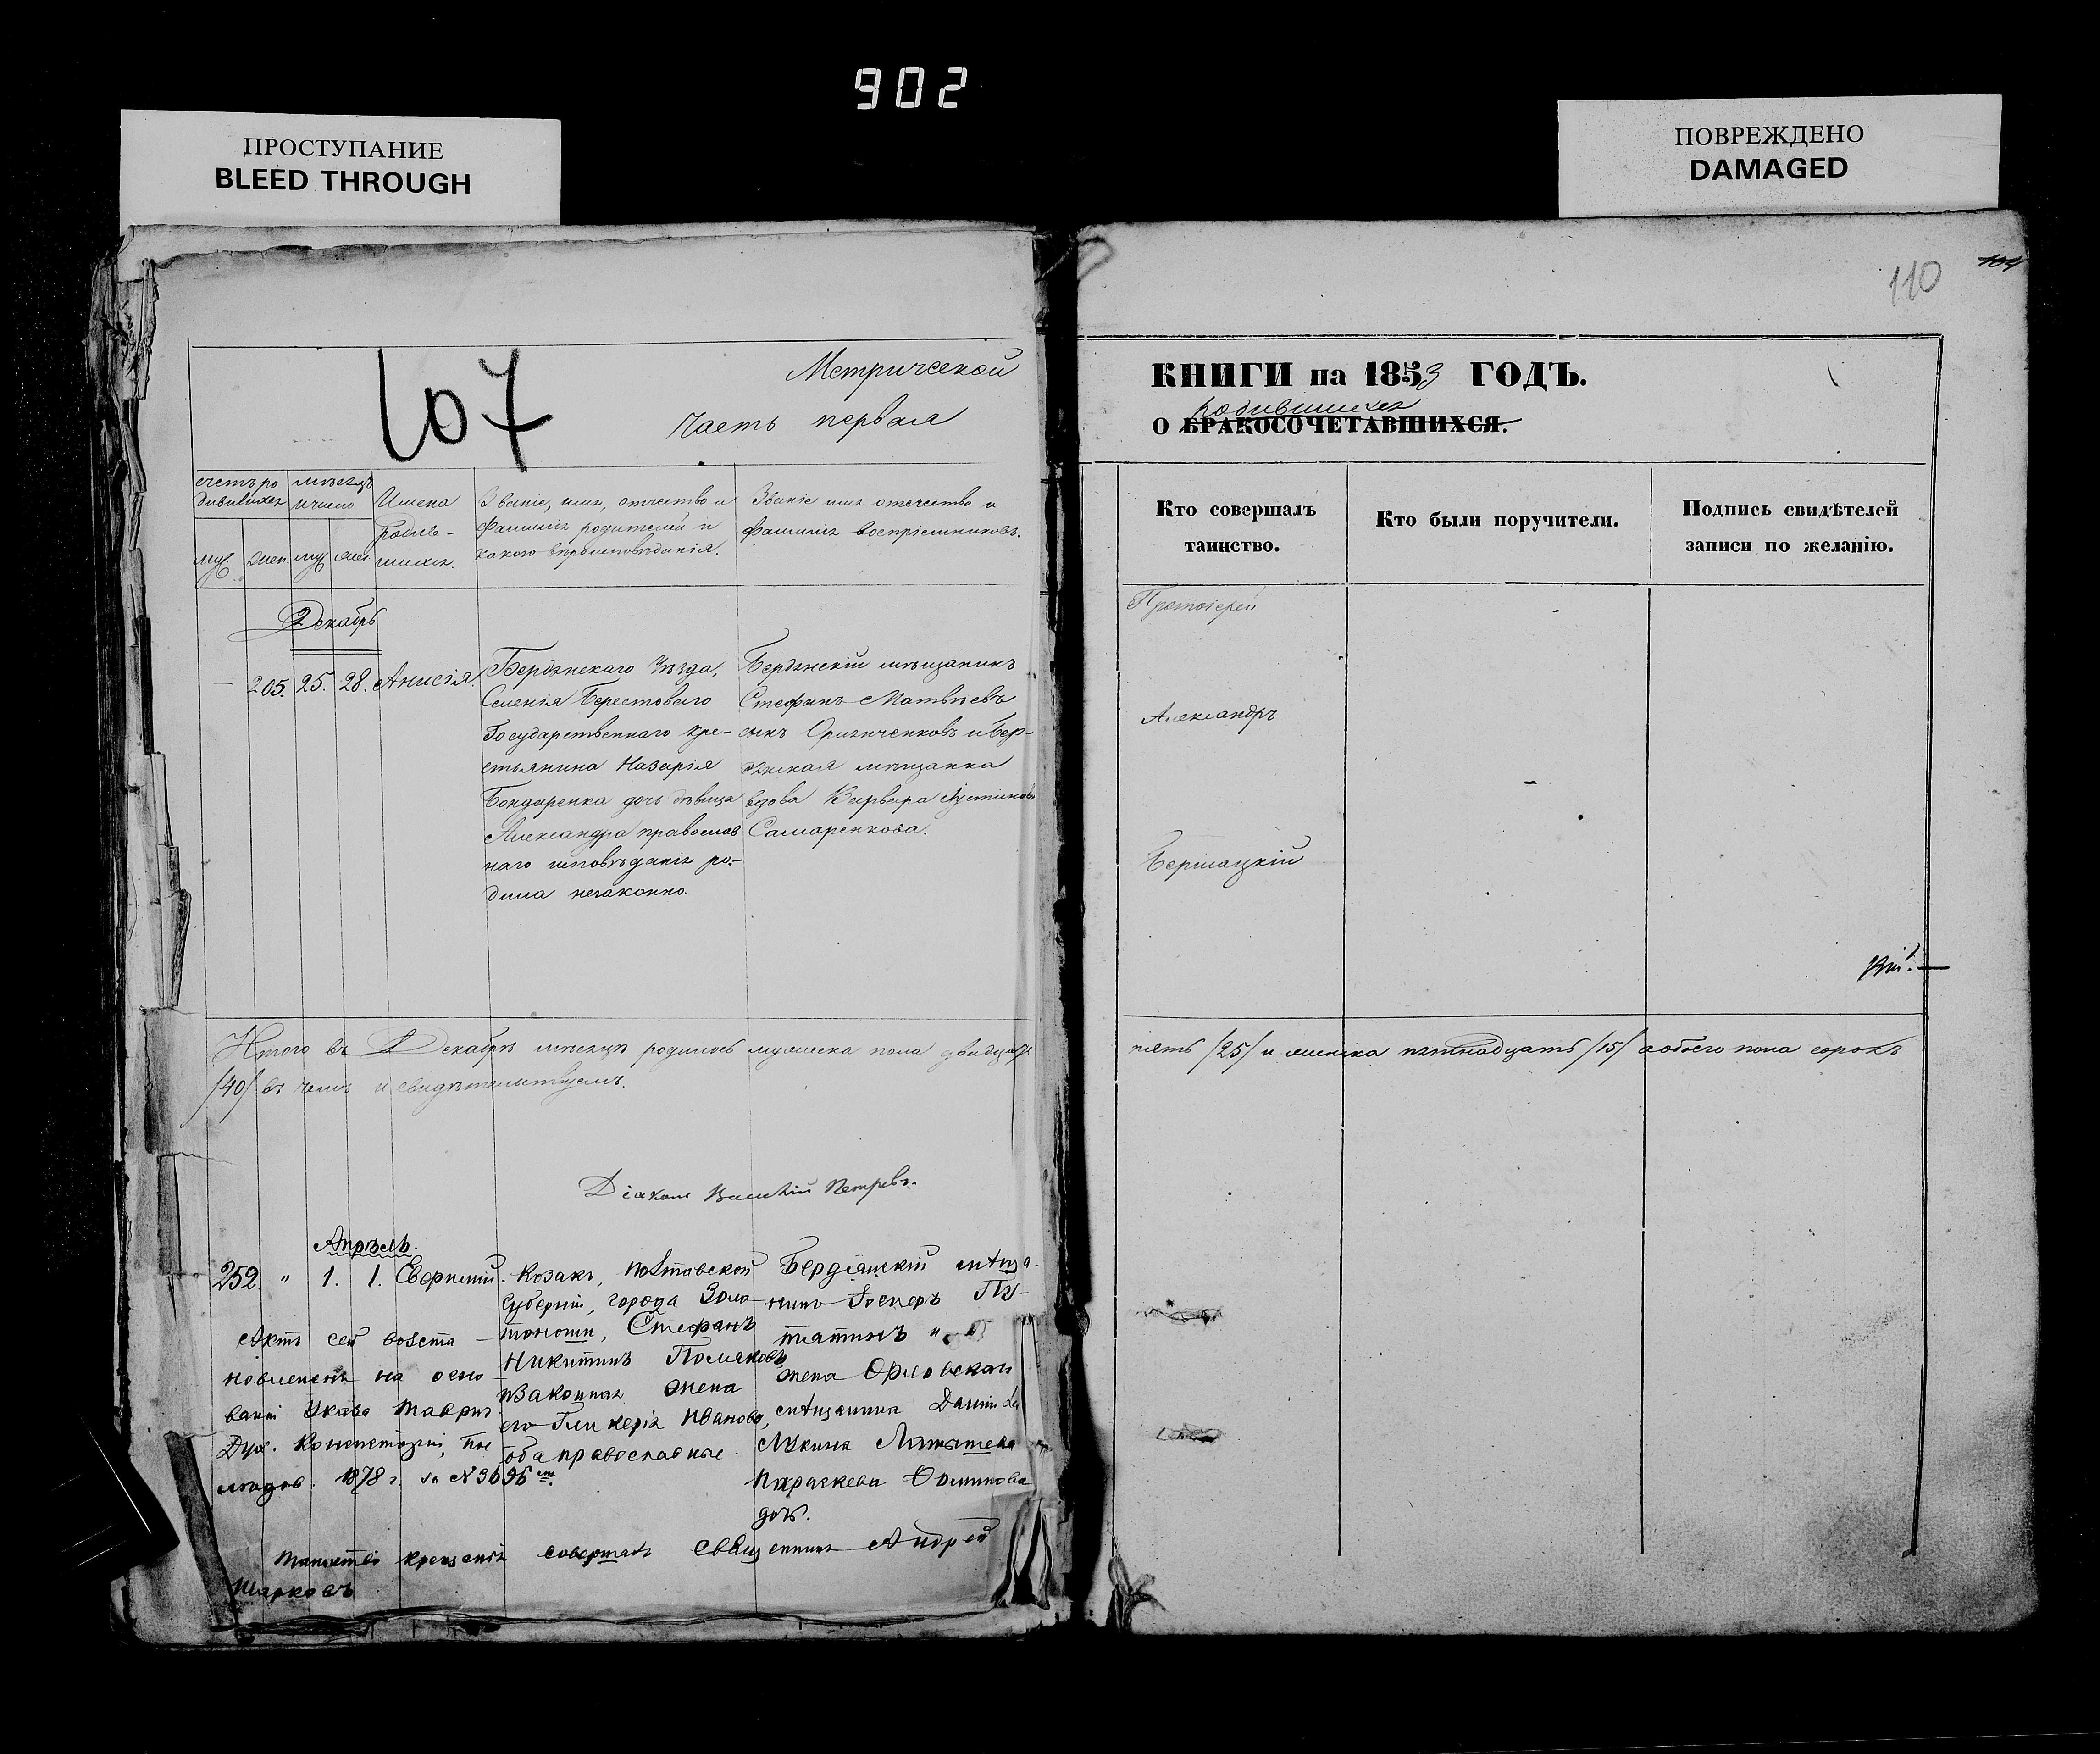 902
ПРОСТУПАНИЕ
BLEED THROUGH
ПОВРЕЖДЕНО
DAMAGED
107
Метрической
Часть первая
счетъ ро
дившихся
мѣсяцъ
и число
Имена
родив-
шихся.
Званіе, имя, отчество и
фамилія родителей и
какого вѣроисповѣданія.
Званіе имя отечество и
фамилія воспріемниковъ.
муж.
жен.
муж
жен
Декабрь
205. 25. 28. Анисія.
Бердянскаго Уѣзда,
Селенія Берестоваго
Государственнаго кре-
стьянина Назарія
Бондаренка дочь дѣвица
Александра православ
наго исповѣданія ро-
дила незаконно.
Бердянскій мѣщанинъ
Стефанъ Матвѣевъ
сынъ Ориниченковъ и Бер-
дянская мѣщанка
вдова Варвара
Самаренкова.
Итого въ Декабрѣ мѣсяцѣ родилось мужеска пола двадцать
/40/ въ чемъ и свидѣтельствуемъ.
Діаконъ Василій Петровъ.
Апрѣль.
252. " 1. 1. Евфимій.
Козакъ, Полтавской
губерніи, города Золо-
тоноши, Стефанъ
Никитинъ Поляковъ
и законная жена
его Гликерія Иванова,
оба православные.
Бердянскій мѣща-
нинъ
жена Орловскаго
мѣщанина
Параскева
дочь.
Актъ сей возста-
новленъ на осно-
ваніи Указа Таврич.
Дух. Консисторіи,
1878 г. за № 3696
Таинство крещенія совершалъ Священникъ Андрей
Шарковъ
110
104
КНИГИ на 1853 ГОДЪ.
родившихся
О БРАКОСОЧЕТАВШИХСЯ.
Кто совершалъ
таинство.
Кто были поручители.
Подпись свидѣтелей
записи по желанію.
Протоіерей
Александръ
пять /25/ и женска пятнадцать /15/ а обоего пола сорокъ